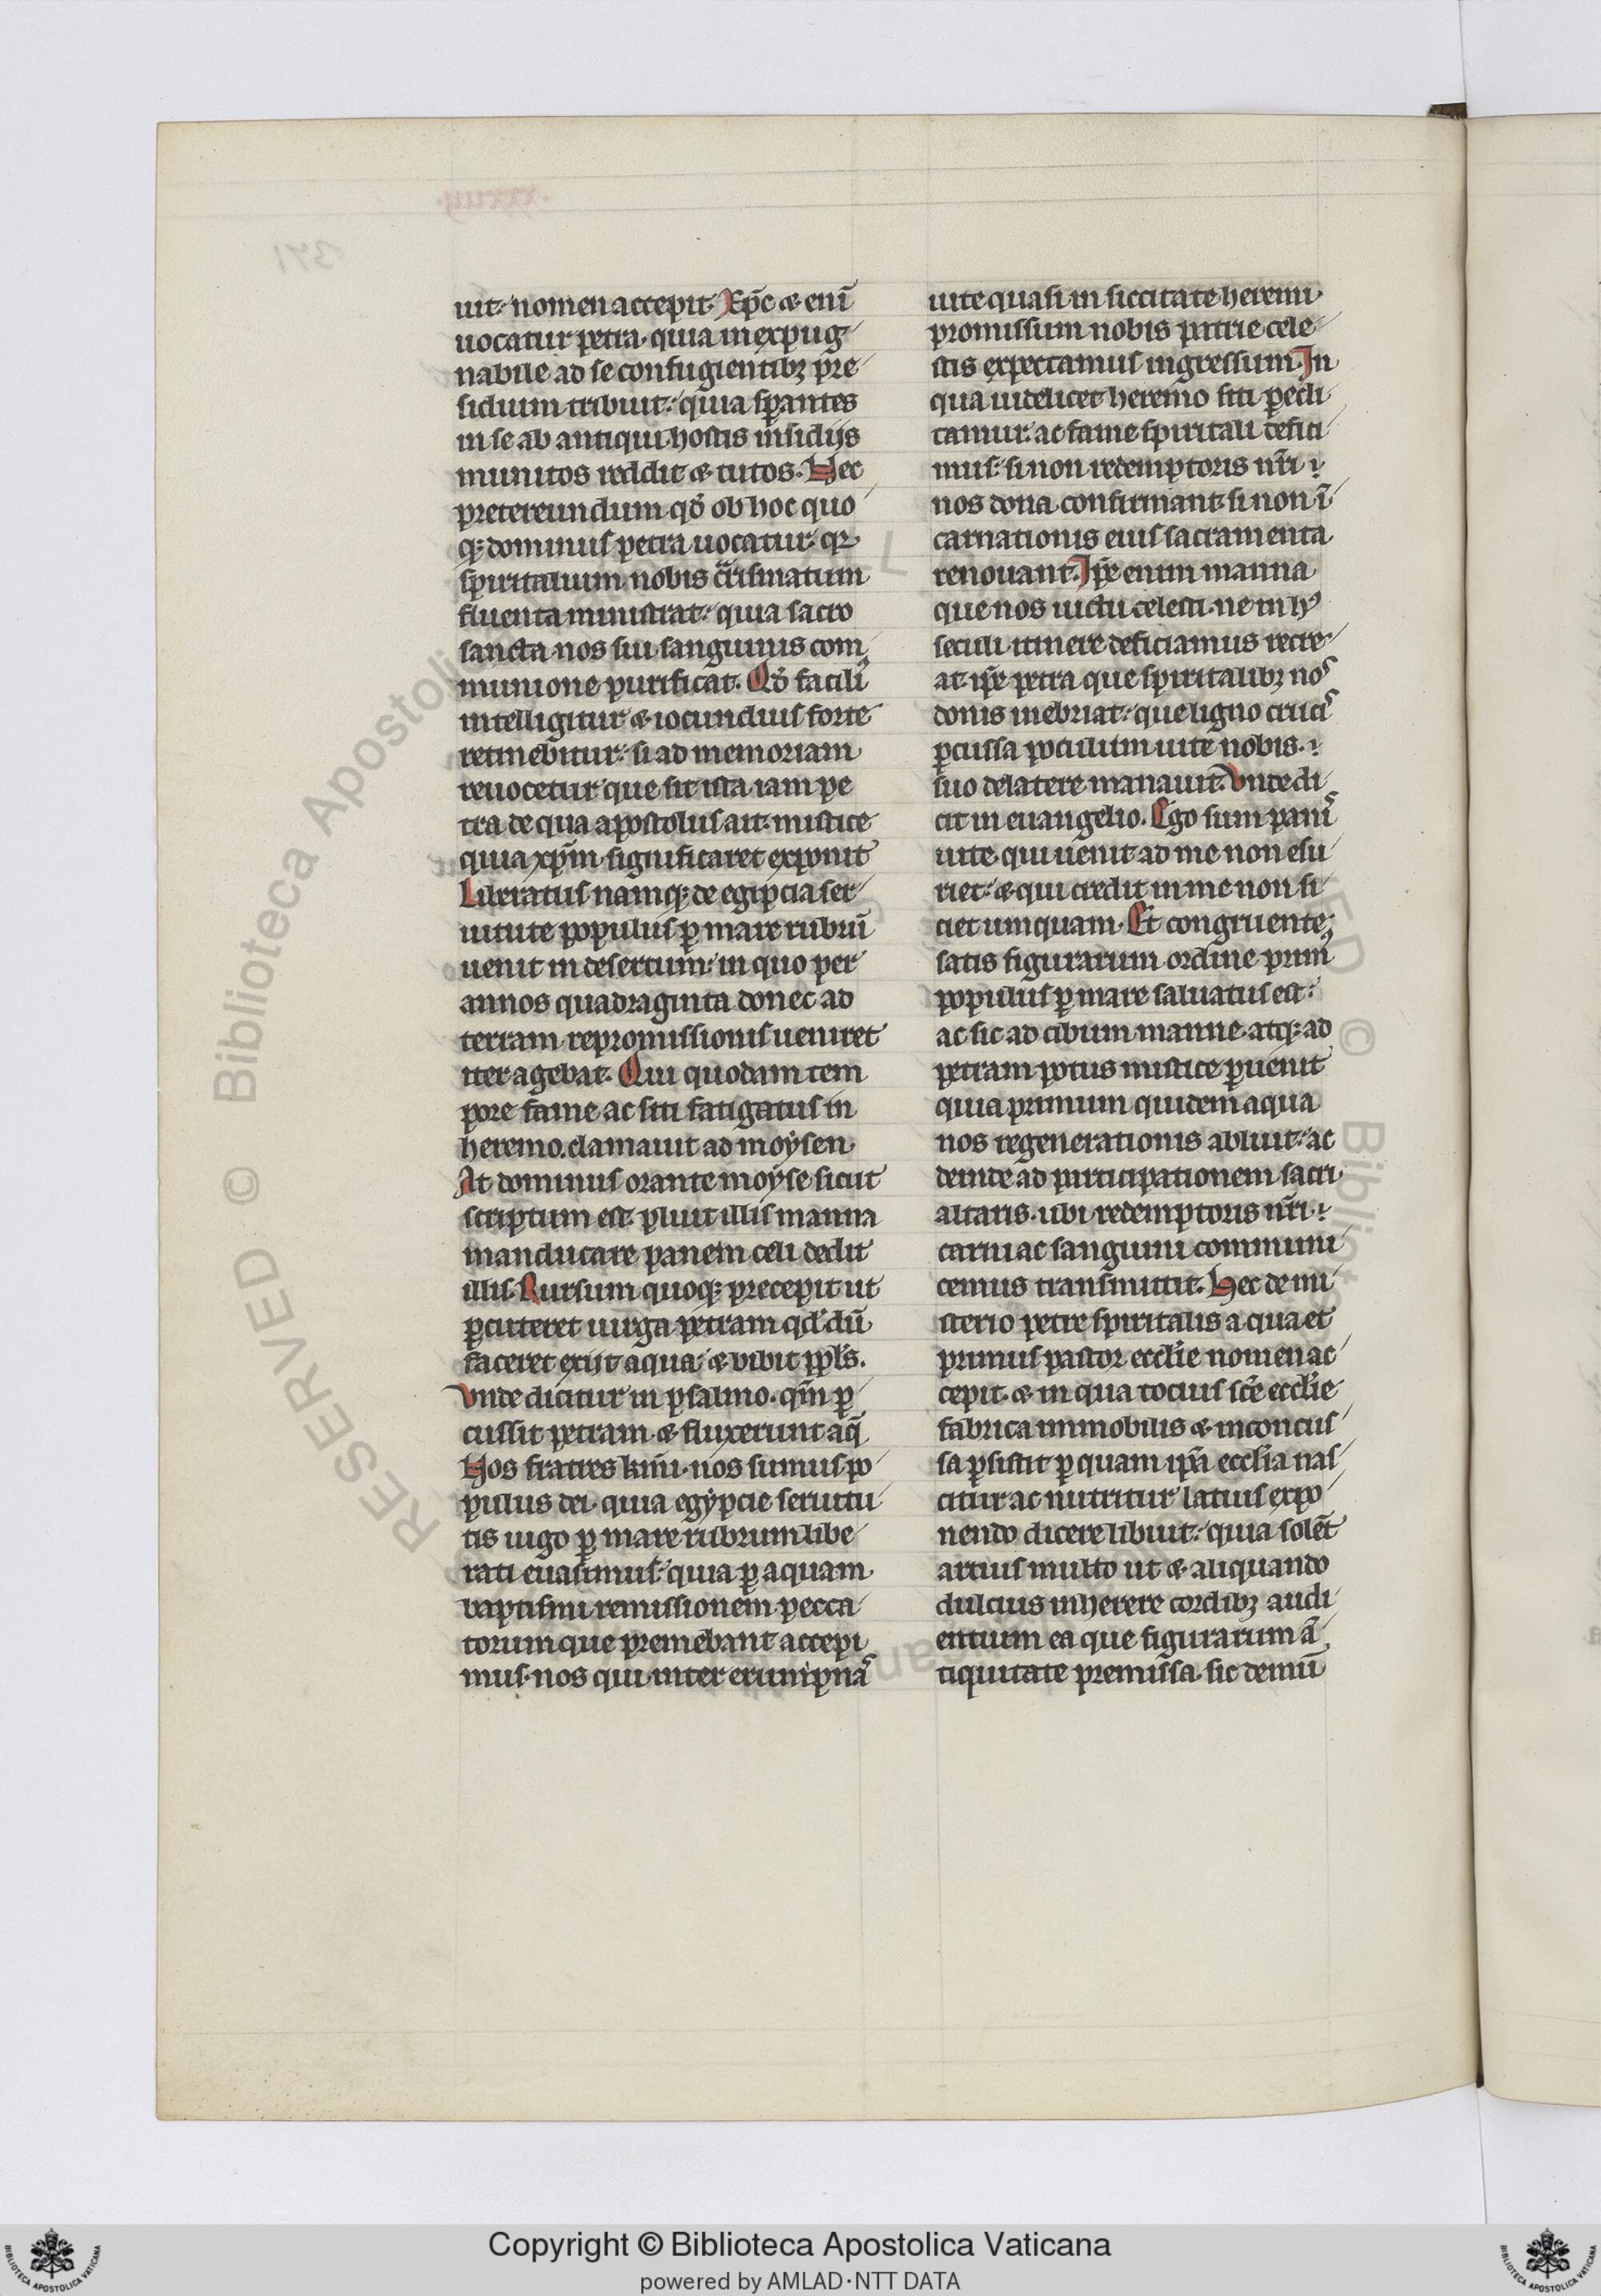 uit: nomen accepit. Xp̄c & eni᷒
uocatur petra. quia inexpug
nabile ad se confugientibꝫ pre
sidium tribuit: quia sꝑantes
in se ab antiqui hostis insidijs
munitos reddit & tutos. Hec
pretereundum qđ ob hoc quo
qꝫ dominus petra uocatur. qꝛ
spiritalium nobis carismatum
fluenta ministrat: quia sacro
sancta nos sui sanguinis com
munione purificat. Qđ facili᷒
intelligitur & iocundius forte
retinebitur: si ad memoriam
reuocetur que sit ista iam pe
tra de qua apostolus ait. mistice
quia xp̄m significaret exponit
Liberatus namqꝫ de egipcia ser
uitute populus ꝑ mare rubrū
uenit in desertum: in quo per
annos quadraginta donec ad
terram repromissionis ueniret
iter agebat. Qui quodam tem
pore fame ac siti fatigatus in
heremo. clamauit ad moẏsen.
At dominus orante moẏse sicut
scriptum est. pluit illis manna
manducare panem celi dedit
illis. Rursum quoqꝫ precepit ut
ꝑcuteret uirga petram qd' dū
faceret exijt aqua: & bibit ppl's.
Vnde dicitur in psalmo. qm̄ ꝑ
cussit petram. & fluxerunt aq̄
Nos fratres kmi. nos sumus po
pulus dei. quia egẏpcie seruitu
tis iugo ꝑ mare rubrum libe
rati euasimus: quia ꝑ aquam
baptismi remissionem pecca
torum que premebant accepi
mus. nos qui inter erumpnas
uite quasi in siccitate heremi
promissum nobis patrie cele
stis expectamus ingressum. In
qua uidelicet heremo siti ꝑecli
tamur. ac fame spiritali defici
mus: si non redemptoris nr̄i
nos dona confirmant. si non ī
carnationis eius sacramenta
renouant. Ip̄e enim manna
que nos uictu celesti. ne in hꝰ
seculi itinere deficiamus recre
at. ip̄e petra que spiritalibꝫ nos
donis inebriat: que ligno crucis
ꝑcussa poculum uite nobis
suo de latere manauit. Vnde di
cit in euangelio. Ego sum panis
uite. qui uenit ad me non esu
riet: & qui credit in me non si
ciet umquam. Et congruente
satis figurarum ordine prim᷒
populus ꝑ mare saluatus est:
ac sic ad cibum manne. atqꝫ ad
petram potus mistice ꝑuenit
quia primum quidem aqua
nos regenerationis abluit: ac
deinde ad participationem sacri
altaris. ubi redemptoris nr̄i
carni ac sanguini communi
cemus transmittit. Hec de mi
sterio petre spiritalis a qua et
primus pastor eccl'ie nomen ac
cepit. & in qua tocius sc̄e eccl'ie
fabrica immobilis & inconcus
sa ꝑsistit ꝑ quam ip̄a eccl'ia nas
citur ac nutritur latius expo
nendo dicere libuit: quia solēt
artius multo ut & aliquando
dulcius inherere cordibꝫ audi
entium ea que figurarum ā
tiquitate premissa. sic demū
Copyright © Biblioteca Apostolica Vaticana
powered by AMLAD·NTT DATA